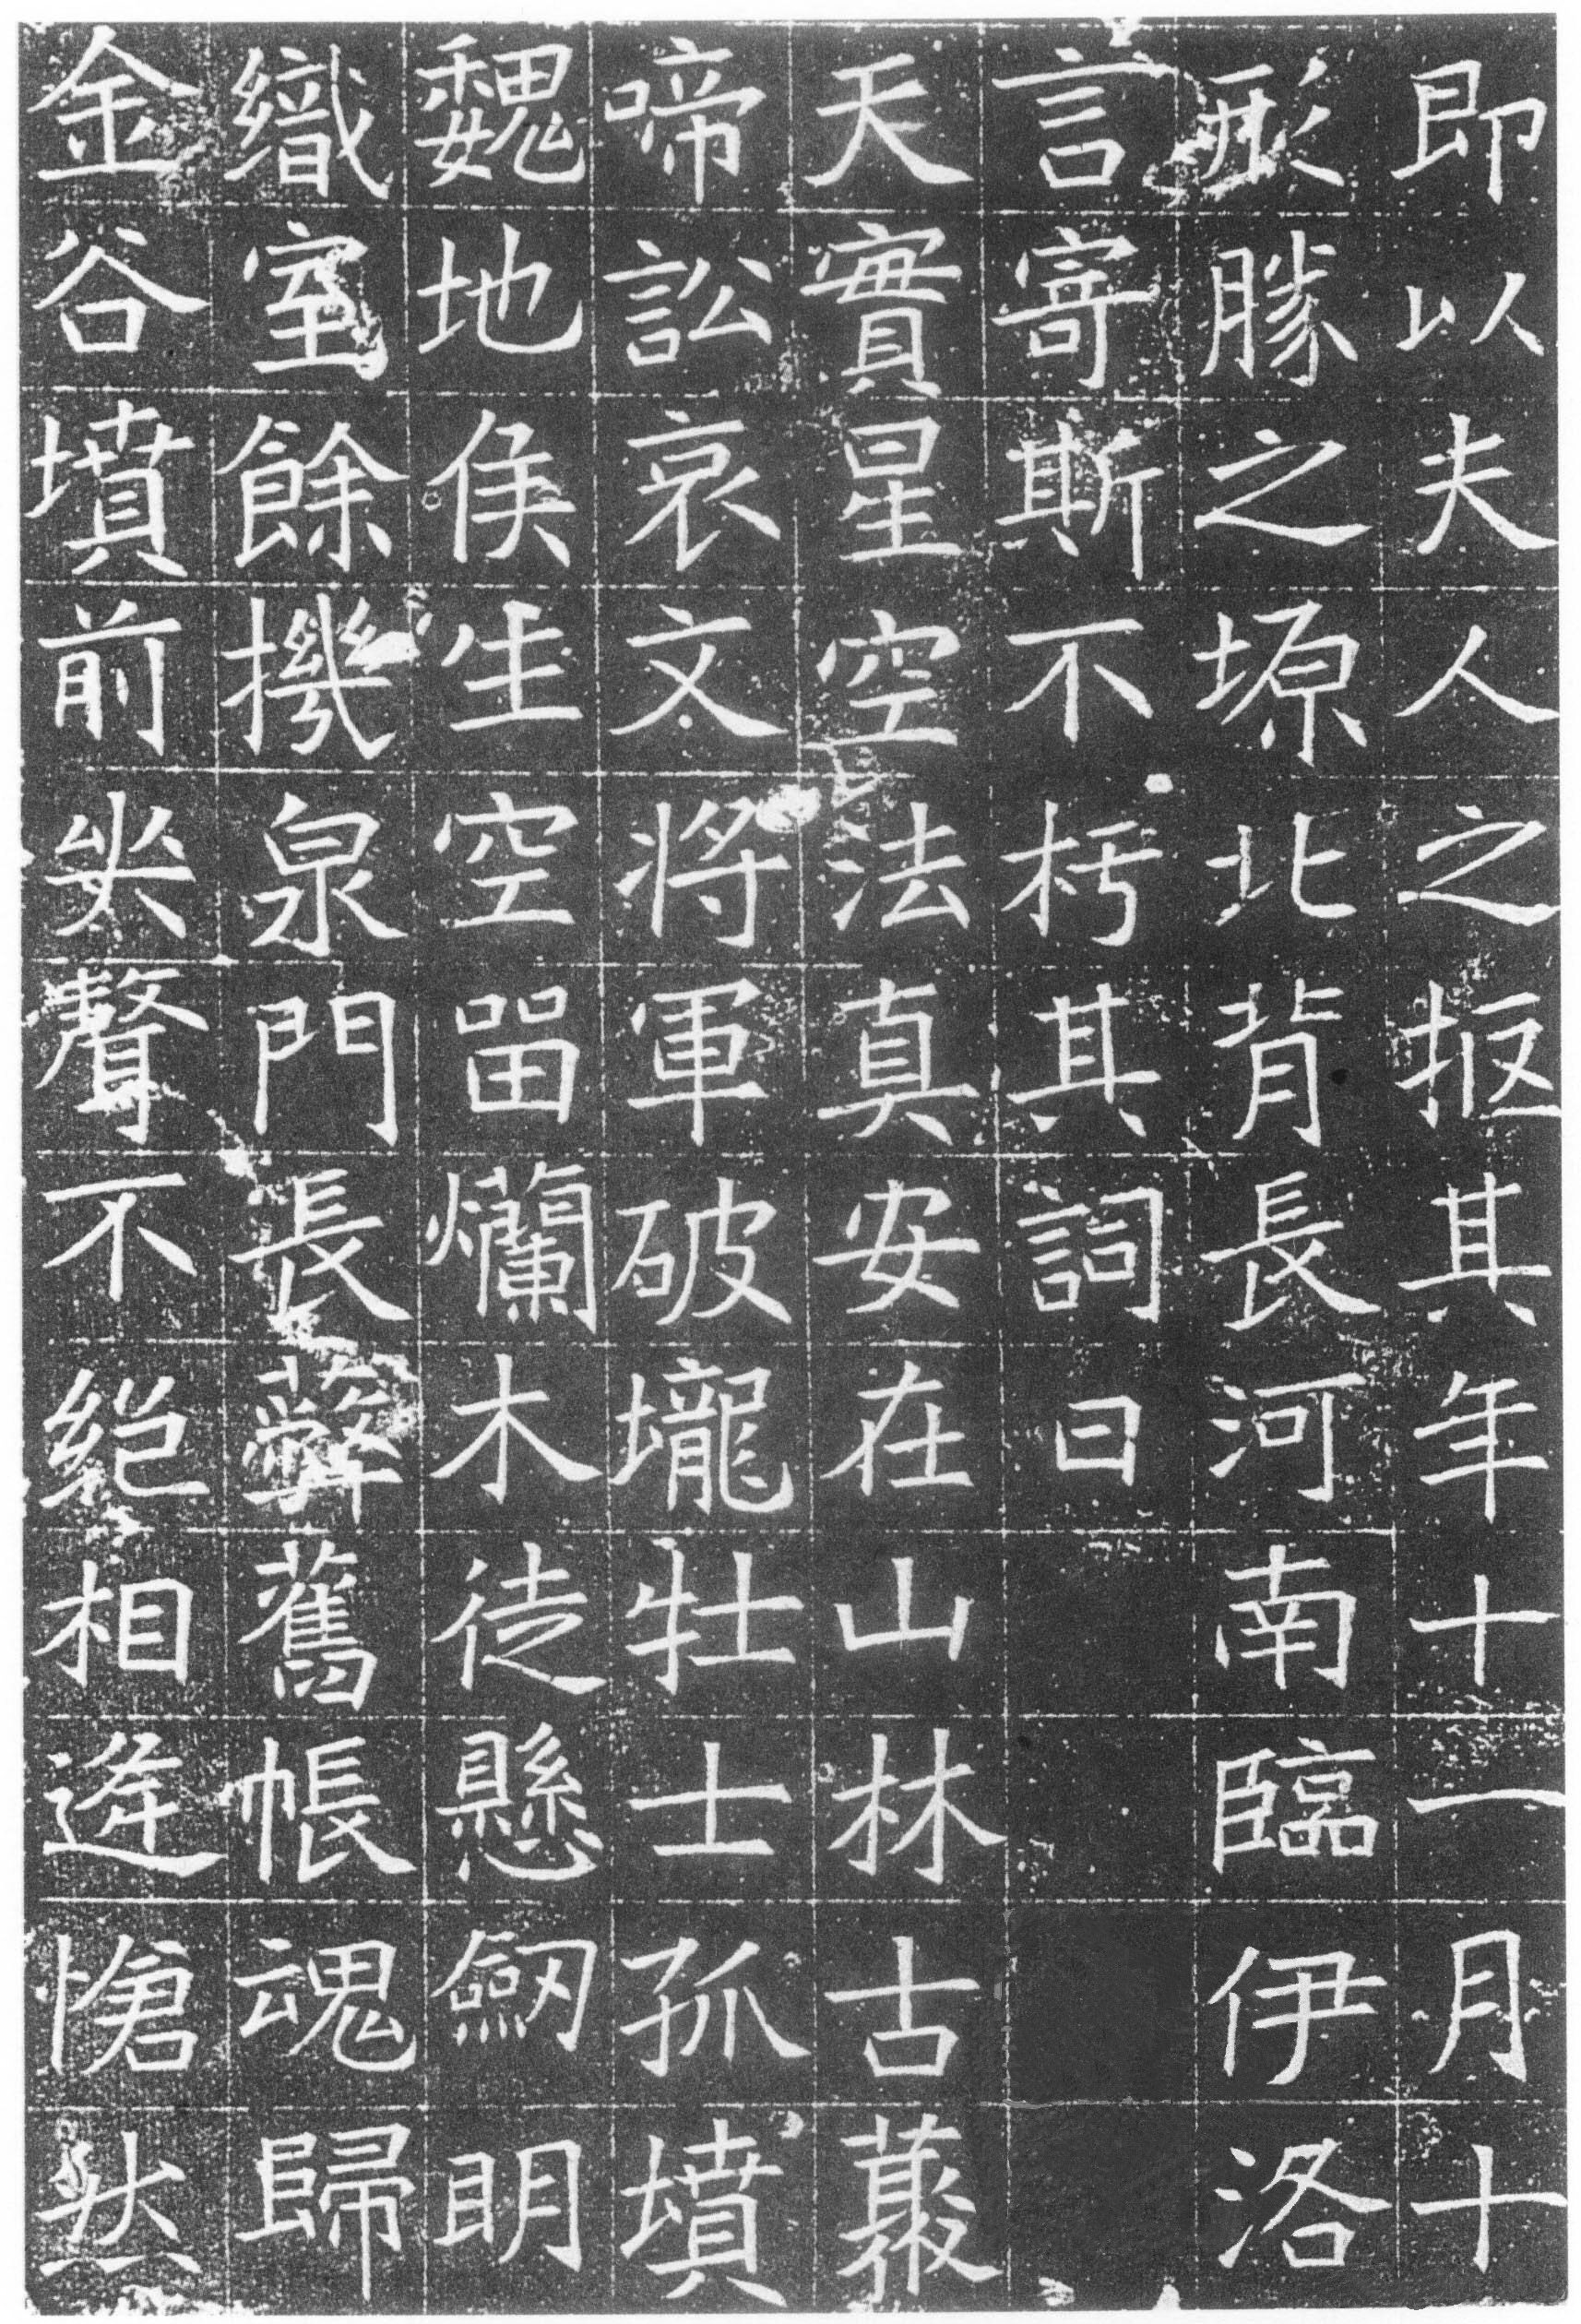 即以夫人之柩其年十一月十
形勝之塬北背長河南臨伊洛
言寄斯不朽其詞曰
天實星空法真安在山林古藂
啼訟哀文將軍破壠牡士孤墳
魏地侯生空留爛木徒懸劒明
織室餘機泉門長舊帳魂歸
金谷墳前哭聲不絕相逢愴然